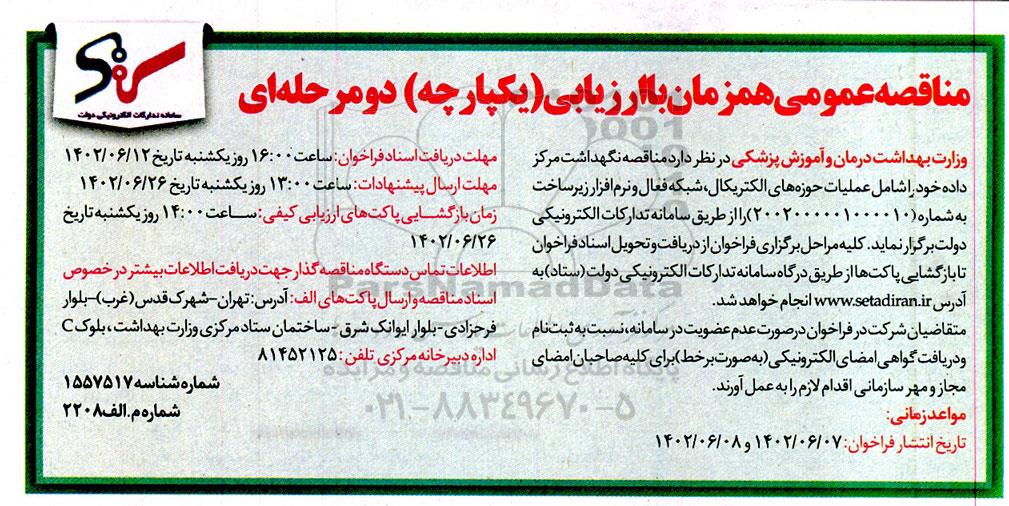 سامانه تدارکات الکترونیکی دولت
مناقصه عمومی همزمان با ارزیابی (یکپارچه) دو مرحله‌ای
وزارت بهداشت درمان و آموزش پزشکی در نظر دارد مناقصه نگهداشت مرکز
داده خود را شامل عملیات حوزه‌های الکتریکال، شبکه فعال و نرم‌افزار زیرساخت
به شماره (۲۰۰۲۰۰۰۰۰۰۱۰۰۰۰۱۰) را از طریق سامانه تدارکات الکترونیکی
دولت برگزار نماید. کلیه مراحل برگزاری فراخوان از دریافت و تحویل اسناد فراخوان
تا بازگشایی پاکت‌ها از طریق درگاه سامانه تدارکات الکترونیکی دولت (ستاد) به
آدرس www.setadiran.ir انجام خواهد شد.
متقاضیان شرکت در فراخوان در صورت عدم عضویت در سامانه، نسبت به ثبت نام
و دریافت گواهی امضای الکترونیکی (به صورت برخط) برای کلیه صاحبان امضای
مجاز و مهر سازمانی اقدام لازم را به عمل آورند.
مواعد زمانی:
تاریخ انتشار فراخوان: ۱۴۰۲/۰۶/۰۷ و ۱۴۰۲/۰۶/۰۸
مهلت دریافت اسناد فراخوان: ساعت ۱۶:۰۰ روز یکشنبه تاریخ ۱۴۰۲/۰۶/۱۲
مهلت ارسال پیشنهادات: ساعت ۱۳:۰۰ روز یکشنبه تاریخ ۱۴۰۲/۰۶/۲۶
زمان بازگشایی پاکت‌های ارزیابی کیفی: ساعت ۱۴:۰۰ روز یکشنبه تاریخ
۱۴۰۲/۰۶/۲۶
اطلاعات تماس دستگاه مناقصه گذار جهت دریافت اطلاعات بیشتر در خصوص
اسناد مناقصه و ارسال پاکت‌های الف: آدرس: تهران-شهرک قدس (غرب)-بلوار
فرحزادی-بلوار ایوانک شرق-ساختمان ستاد مرکزی وزارت بهداشت، بلوک C
اداره دبیرخانه مرکزی تلفن: ۸۱۴۵۲۱۲۵
شماره شناسه ۱۵۵۷۵۱۷
شماره م.الف ۲۲۰۸
ParsNamadData
پایگاه اطلاع رسانی مناقصه و مزایده
۰۲۱-۸۸۳۴۹۶۷۰-۵